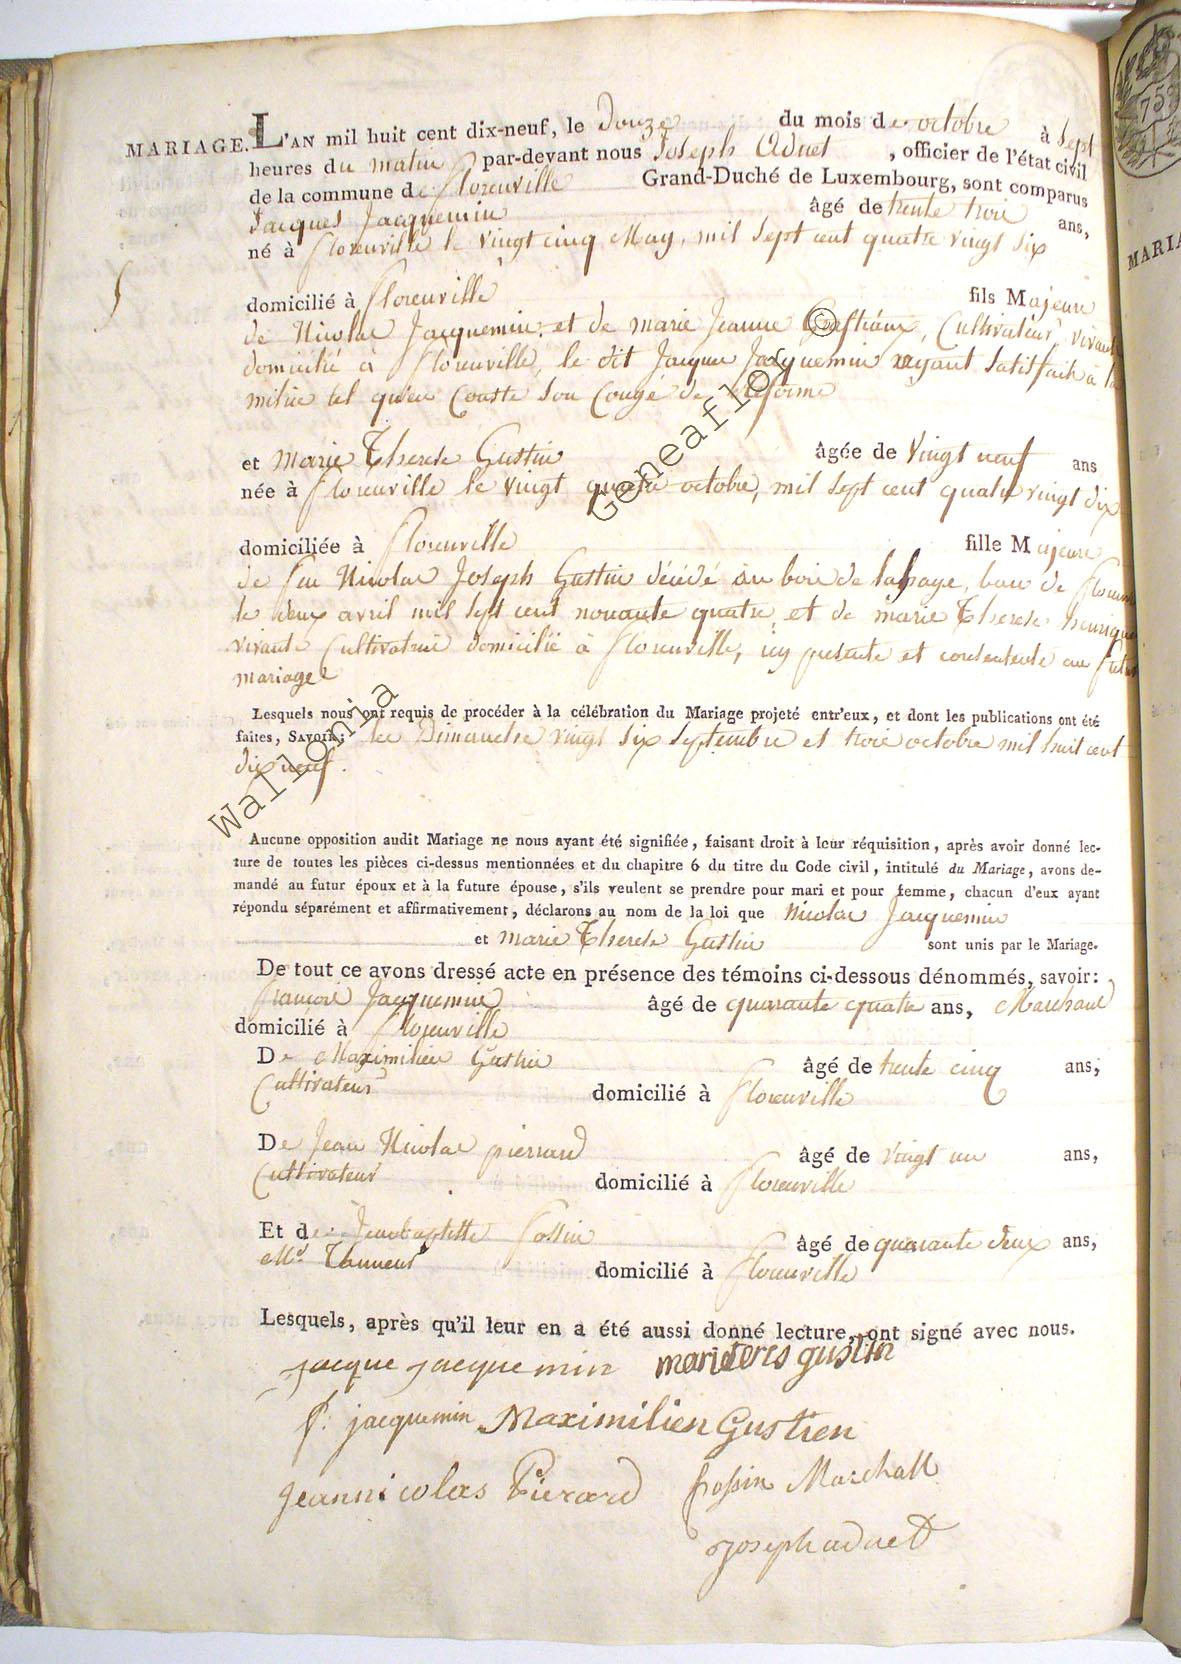 MARIAGE. L'AN mil huit cent dix-neuf, le Douze du mois de octobre à Sept
heures du matin par-devant nous Joseph Adnet , officier de l'état civil
de la commune de florenville Grand-Duché de Luxembourg, sont comparus
Jacques Jacquemin âgé de trente trois ans,
né à florenville le vingt cinq May, mil sept cent quatre vingt six
domicilié à florenville fils Majeure
de Nicolas Jacquemin et de marie Jeanne Cultivateurs, vivant
domicilié à florenville, le dit Jacque Jacquemin ayant satisfait à la
milice tel qu'en Conste son Congé de reforme
et Marie Therese Gustin âgée de Vingt neuf ans
née à florenville le vingt octobre, mil sept cent quatre vingt dix
domiciliée à florenville fille Majeure
de feu Nicolas Joseph Gustin décédé au bois de lahaye, ban de
le deux avril mil sept cent nonante quatre, et de marie Therese
vivante Cultivatrice domicilié à florenville, icy presente et consentente au
mariage
Lesquels nous ont requis de procéder à la célébration du Mariage projeté entr'eux, et dont les publications ont été
faites, SAVOIR: les Dimanche vingt six septembre et trois octobre mil huit cent
dix neuf.
Aucune opposition audit Mariage ne nous ayant été signifiée, faisant droit à leur réquisition, après avoir donné lec-
ture de toutes les pièces ci-dessus mentionnées et du chapitre 6 du titre du Code civil, intitulé du Mariage, avons de-
mandé au futur époux et à la future épouse, s'ils veulent se prendre pour mari et pour femme, chacun d'eux ayant
répondu séparément et affirmativement, déclarons au nom de la loi que Nicolas Jacquemin
et marie Therese Gustin sont unis par le Mariage.
De tout ce avons dressé acte en présence des témoins ci-dessous dénommés, savoir:
françois Jacquemin âgé de quarante quatre ans, Marchand
domicilié à florenville
De Maximilien Gustin âgé de trente cinq ans,
Cultivateur domicilié à florenville
De Jean Nicolas pierrard âgé de vingt un ans,
Cultivateur domicilié à florenville
Et de Jeanbaptiste fossin âgé de quarante deux ans,
Md. Tanneur domicilié à florenville
Lesquels, après qu'il leur en a été aussi donné lecture, ont signé avec nous.
jacque jacquemin marieteres gustin
f. jacquemin Maximilien Gustien
jeannicolas Pierard fossin Marchall
josephadnet
Wallonia Geneaflor ©
753
MARIA